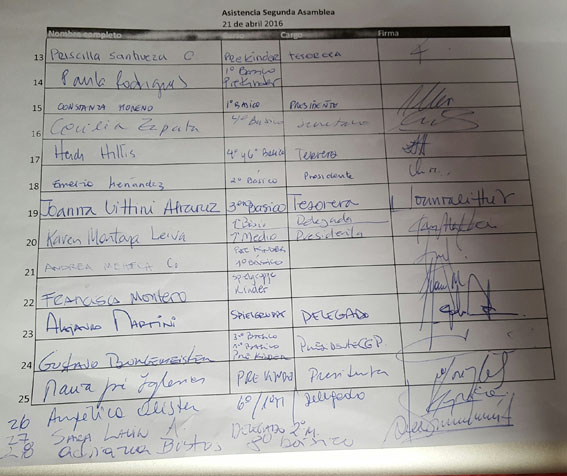 Asistencia Segunda Asamblea
21 de abril 2016
Nombre completo Cargo Firma
13 Priscilla Santueza C. Prekinder Tesorera
14 Paula Rodrigues 1º Basico Prekinder
15 Constanza Moreno 1º Basico Presidente
16 Cecilia Zapata 4º Basico Secretaria
17 Heidi Hillis 4º y 6º Basico Tesorera
18 Emelio Hernandez 2º Básico Presidente
19 Joanna Vittini Alvarez 3er Basico Tesorera
20 Karen Montoya Leiva 1º Basic Delegada
7º Medio Presidenta
21 Andrea C. Pre Kinder
1º Básico
22 Francisca Montero Spielgruppe
Kinder
23 Alejandro Martini Spielgruppe Delegado
24 Gustavo Burgemeister 3º Basico
1º Basico Presidente CGP.
Pre Kinder
25 Maria pi Iglesias Pre Kinder Presidenta
26 Angélica 6º Delegado
27 Sara A. Delegado 2º M.
28 Adriana Bustos 8º Básico